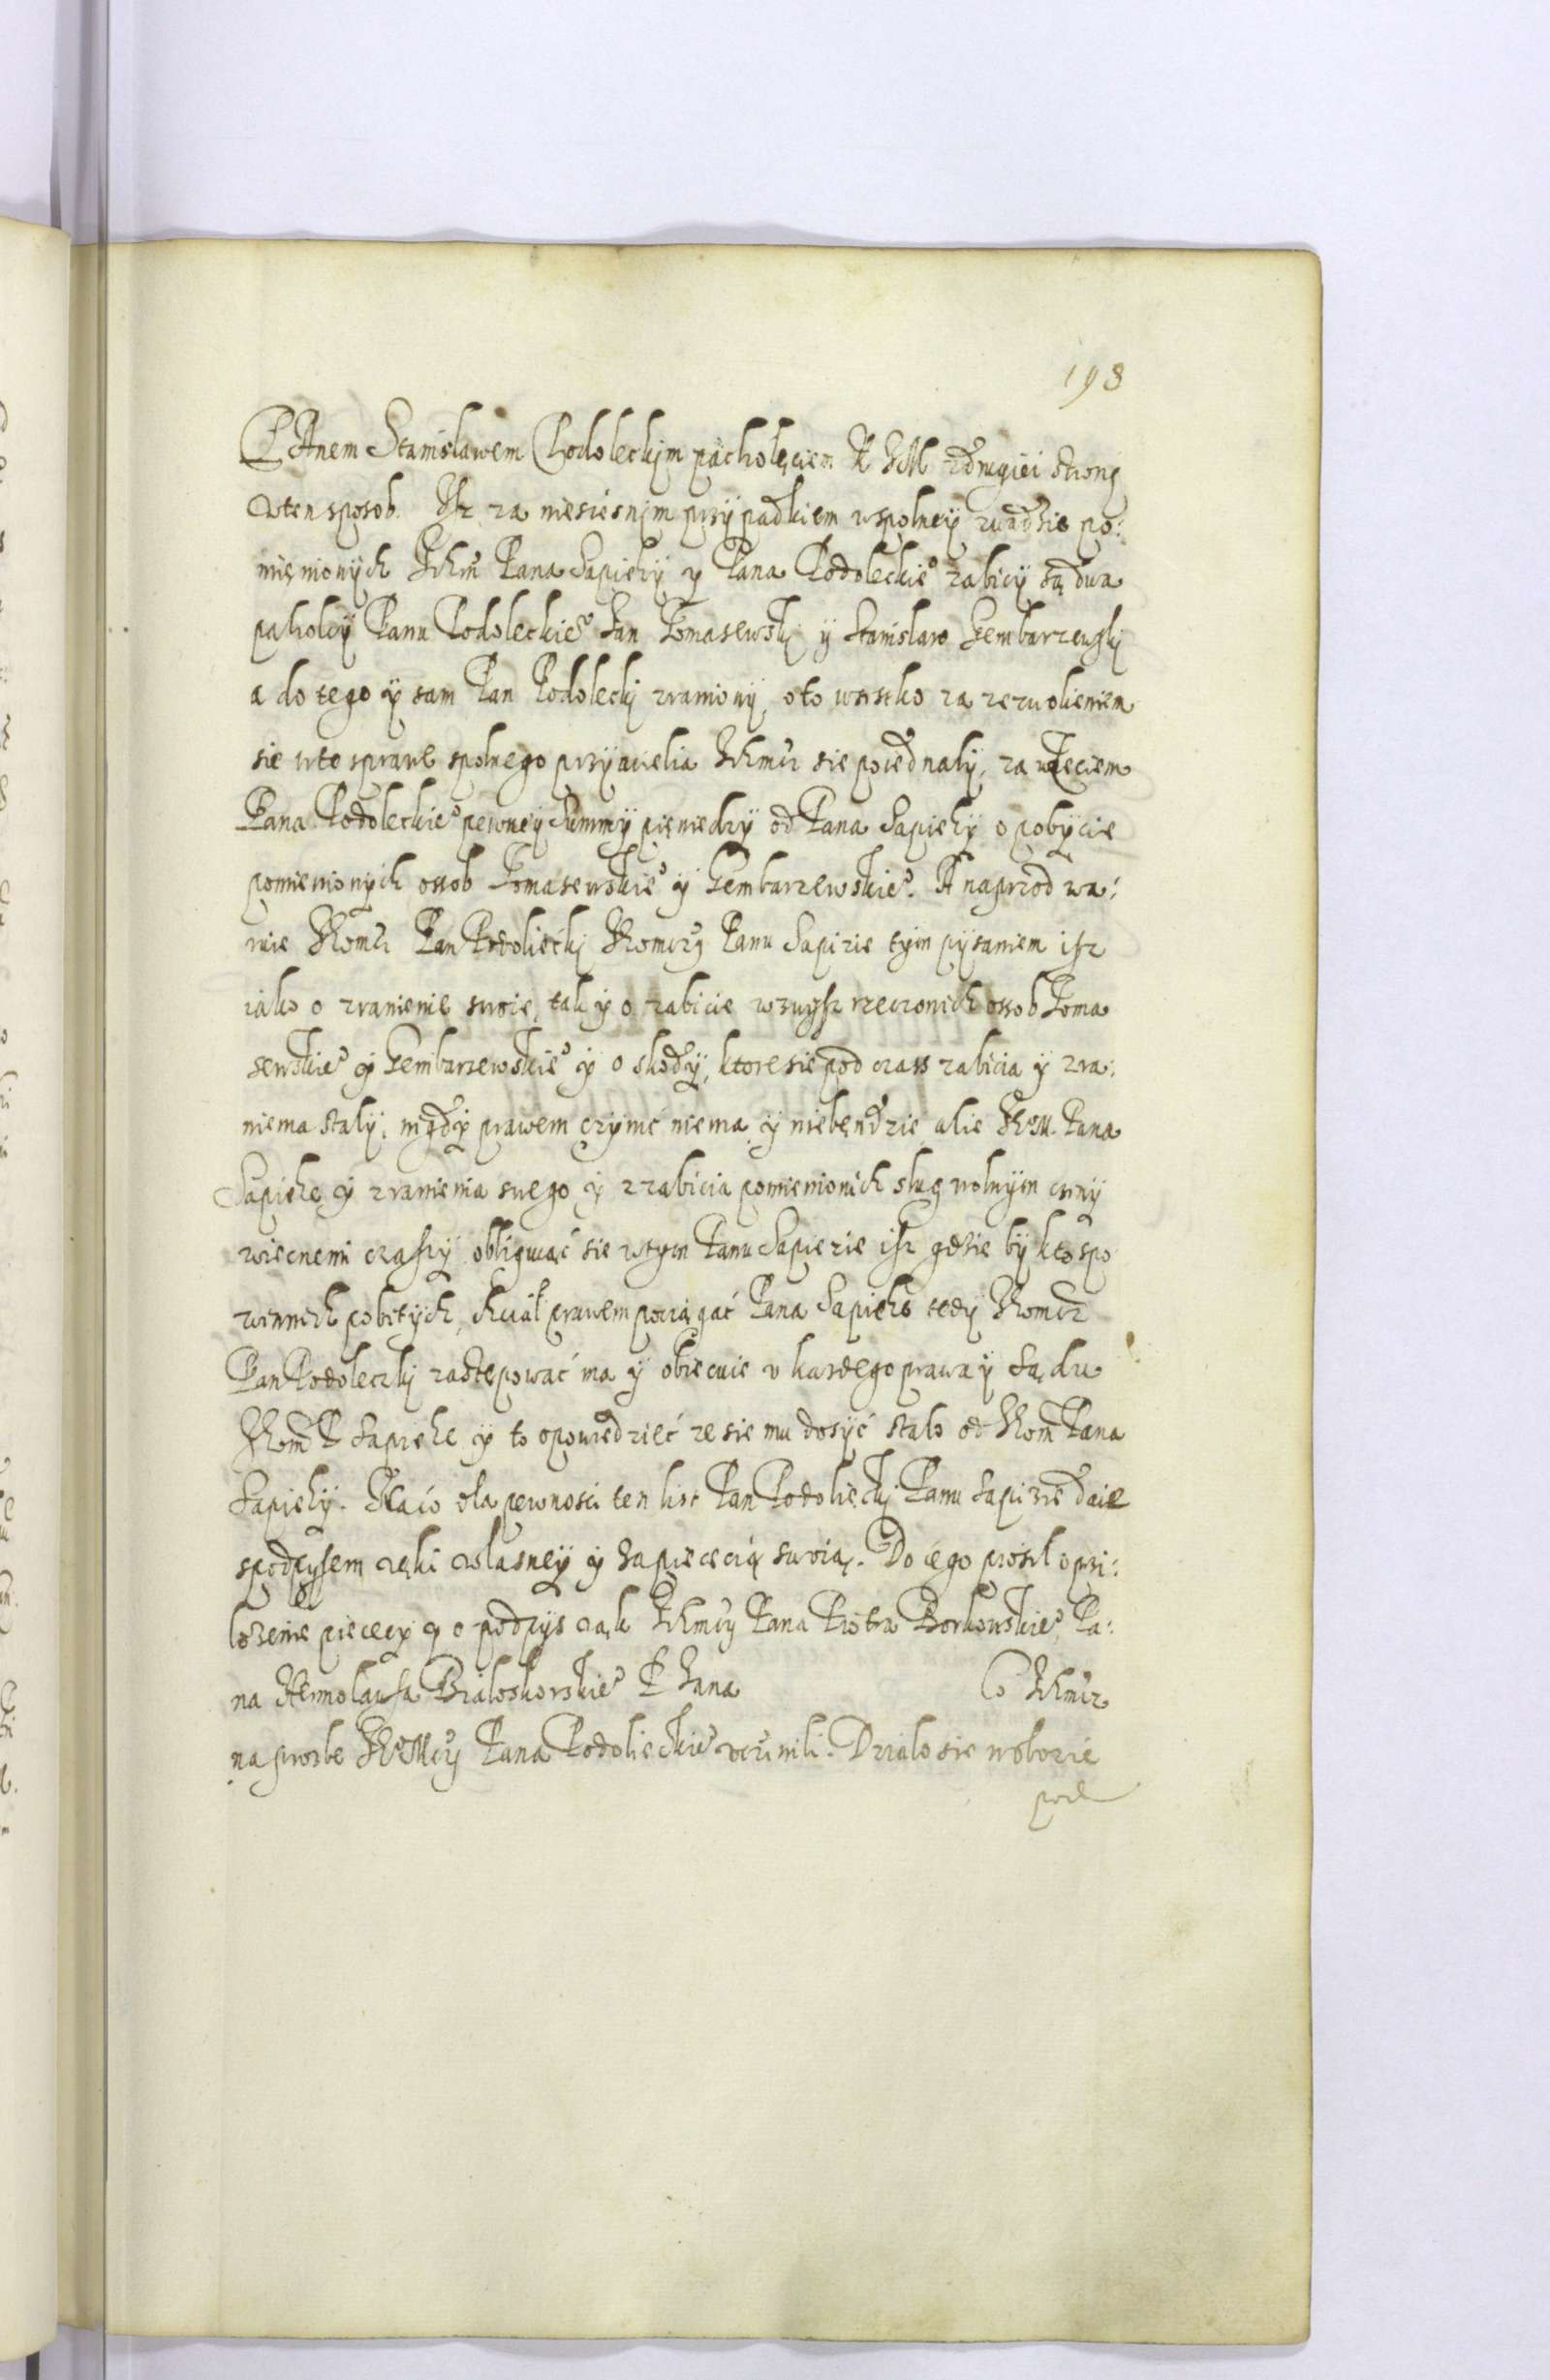 198
PAnem Stanislawem Podoleckim pacholęciem K JM zdrugiei strony
wten sposob. Isz za niesiesnym przypadkiem wspolney zwadzie po:
mięnionych Ichm Pana Sapiehy y Pana Podoleckieo zabicy są dwa
paholcy Panu Podoleckieo Jan Tomasewski y Stanislaw Gembarzewski
a do tego y sam Pan Podolecki zraniony, o to wsistko za zezwolieniem
sie wte sprawe spolnego przyiacielia Ichmci sie poiednaly, za wzięciem
Pana Podoleckieo pewney Summy pięniedzy od Pana Sapiehy o pobycie
pomienionych ossob Tomasewskieo y Gembarzewskieo. A naprzod
Jkomci Pan Podoliecki Jkomczy Panu Sapizie tym pysaniem isz
iako o zranienie swoie, tak y o zabicie wzwysz rzeczonich ossob Toma
sewskieo y Gembarzewskieo y o skody, ktore sie pod czass zabicia y zra:
nienia staly, nigdy prawem czynić niema y niebęndzie alie JkoM. Pana
Sapiehę y zranienia swego y zzabicia pomienionich slug wolnym czyny
wiecnemi czaszy obliguiąć sie wtym Panu Sapiezie isz gdzie by kto spo
winnich pobitych, chciał prawem pociągać Pana Sapiehe tedy Jkomcz
Pan Podoleczki zastepować ma y obiecuie v kazdego prawa y Sądu
Jkom P Sapiehe y to opowiedzieć ze sie mu dosyć stalo od Jkom Pana
Sapiehy. Na co dla pewnosci ten list Pan Podoliecki Panu Sapizie daie
spodpysem ręki wlasney y zapiececią swoią. Do cego prosil o pri:
lozenie piececy y o podpys rąk Ichmcy Pana Piotra Borkowskieo, Pa:
na Iermolausa Bialoskorskieo P Jana Co Ichmcz
na prozbe JkoMcy Pana Podolieckieo vczinili. Dzialo sie wobozie
pod